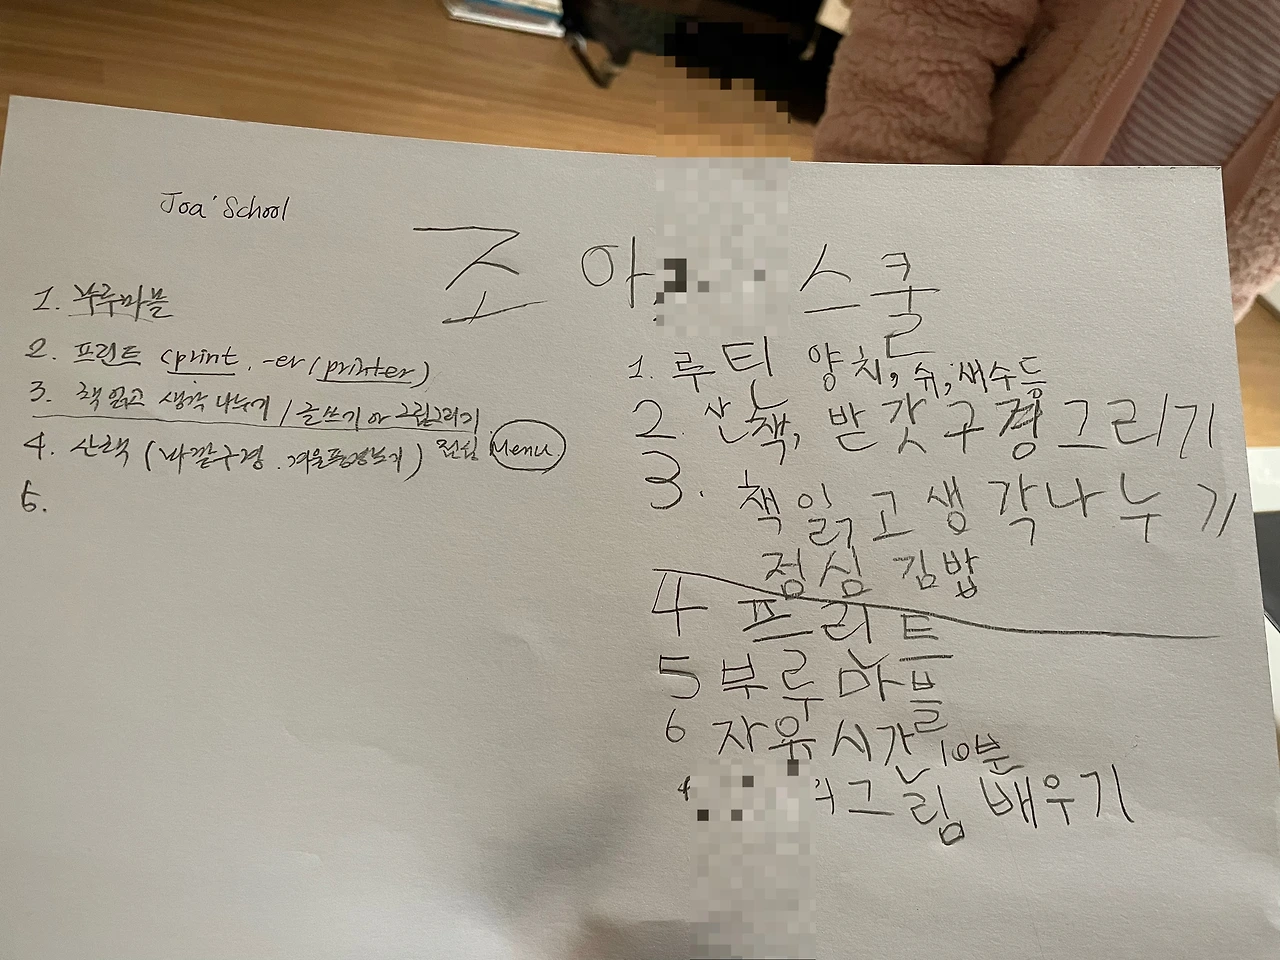 Joa' School
1. 부루마블
2. 프린트 (print, -er / printer)
3. 책 읽고 생각 나누기 / 글쓰기 or 그림그리기
4. 산책 (바깥구경, 겨울풍경보기) 점심 Menu
5.
조아 스쿨
1. 루틴 양치, 쉬, 세수등
2. 산책, 받갓구경그리기
3. 책 읽고 생각나누기
점심 김밥
4 프린트
5 부루마블
6 자유시간 10분
그림 배우기